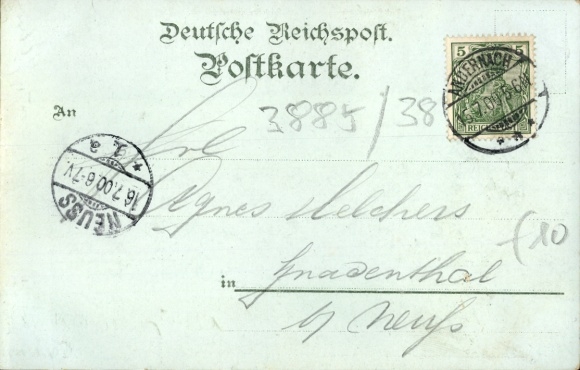 Deutsche Reichspost.
Postkarte.
5 5
ANDERNACH
REICHSPOST
An
3885/38
Frl.
Agnes Melchers
NEUSS
16.7.00.6-7V.
£10
in Gnadenthal
b/ Neuß